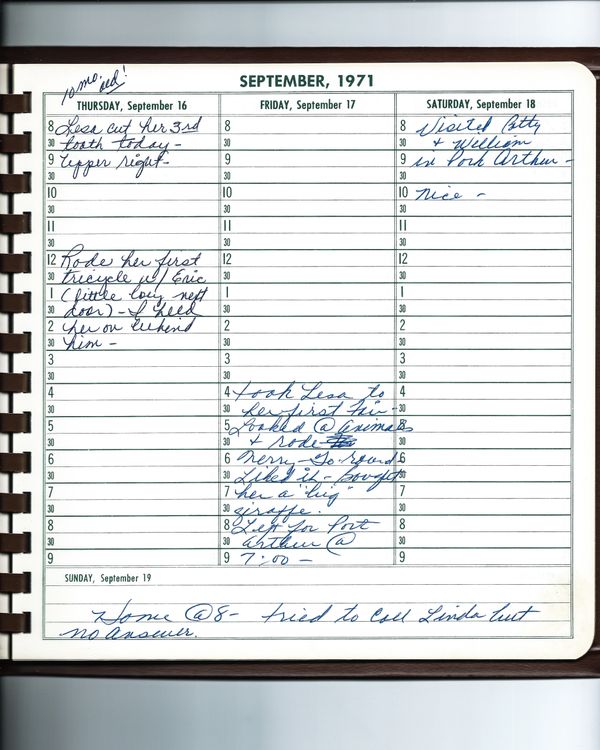 SEPTEMBER, 1971
10 mo. old!
THURSDAY, September 16
8 Lesa cut her 3rd
30 tooth today -
9 Upper right -
30
10
30
11
30
12 Rode her first
30 tricycle w/ Eric
1 (little boy next
30 door) - I held
2 her on behind
30 him -
3
30
4
30
5
30
6
30
7
30
8
30
9
FRIDAY, September 17
8
30
9
30
10
30
11
30
12
30
1
30
2
30
3
30
4 took Lesa to
30 her first fair -
5 Looked @ animals
30 & rode
6 Merry-Go-round
30 Liked it - bought
7 her a "big"
30 giraffe.
8 Left for Port
30 Arthur @
9 7:00 -
SATURDAY, September 18
8 Visited Patty
30 & William
9 in Port Arthur -
30
10 Nice -
30
11
30
12
30
1
30
2
30
3
30
4
30
5
30
6
30
7
30
8
30
9
SUNDAY, September 19
Home @ 8 - tried to call Linda but
no answer.